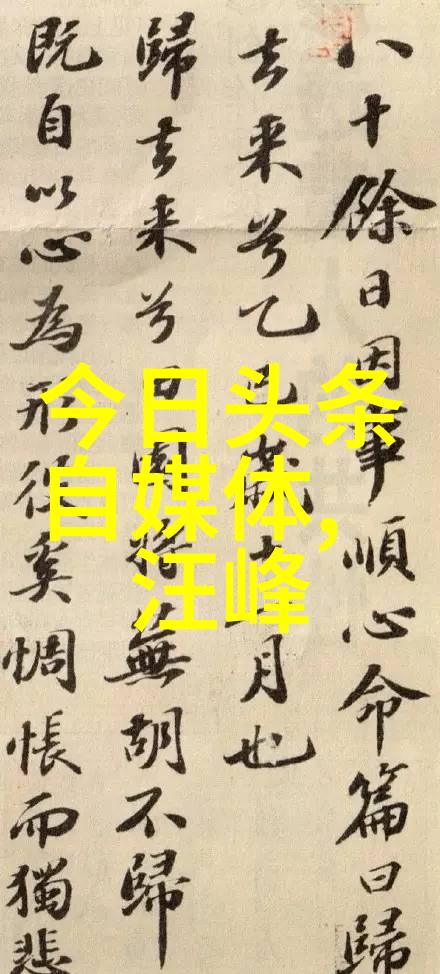 八十餘日因事順心命篇曰歸
去来兮乙巳歲十一月也
歸去来兮田園將蕪胡不歸
既自以心為形役奚惆悵而獨悲
今日头条
自媒体,
汪峰